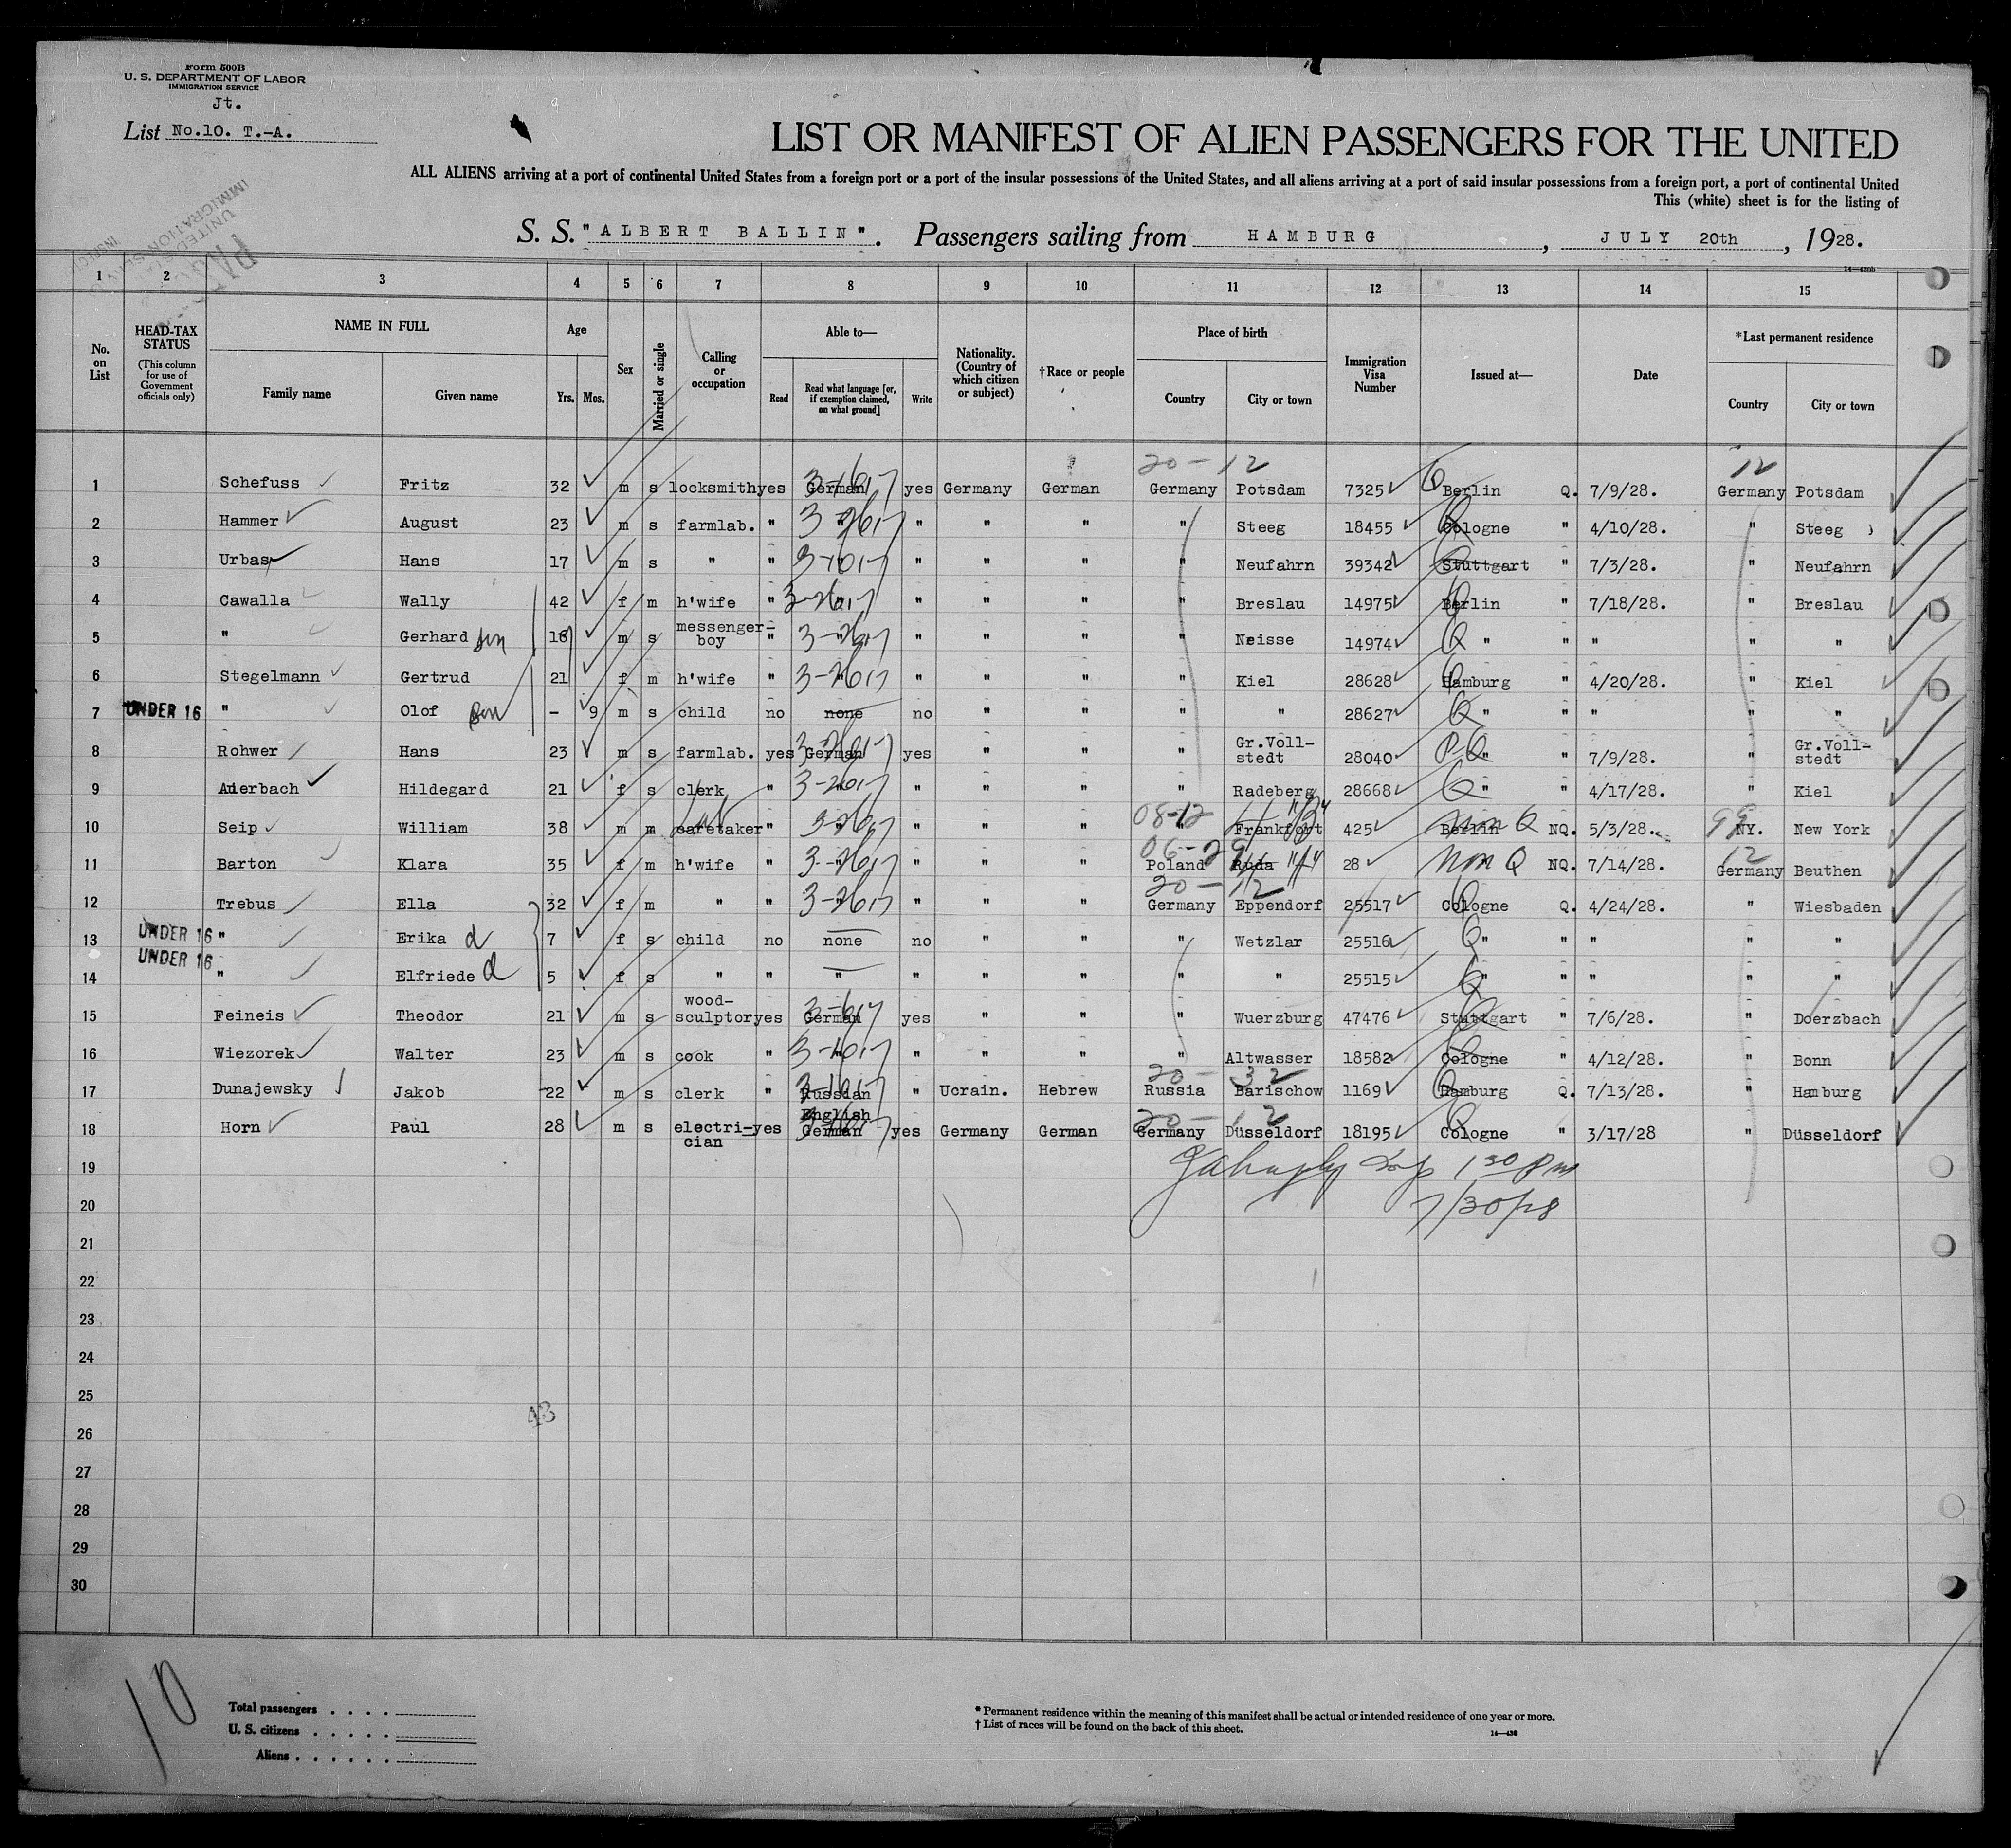 Form 500B
U. S. DEPARTMENT OF LABOR
IMMIGRATION SERVICE
Jt.
List No.10. T.-A.
LIST OR MANIFEST OF ALIEN PASSENGERS FOR THE UNITED
ALL ALIENS arriving at a port of continental United States from a foreign port or a port of the insular possessions of the United States, and all aliens arriving at a port of said insular possessions from a foreign port, a port of continental United
This (white) sheet is for the listing of
S. S. "ALBERT BALLIN". Passengers sailing from HAMBURG, JULY 20th, 1928.
1 2 3 4 5 6 7 8 9 10 11 12 13 14 15
No. on List
HEAD-TAX STATUS (This column for use of Government officials only)
NAME IN FULL
Family name Given name
Age
Yrs. Mos.
Sex
Married or single
Calling or occupation
Able to—
Read Read what language [or, if exemption claimed, on what ground] Write
Nationality. (Country of which citizen or subject)
†Race or people
Place of birth
Country City or town
Immigration Visa Number
Issued at—
Date
*Last permanent residence
Country City or town
20-12 12
1 Schefuss Fritz 32 m s locksmith yes German yes Germany German Germany Potsdam 7325 Berlin Q. 7/9/28. Germany Potsdam
2 Hammer August 23 m s farmlab. " " " " " Steeg 18455 Cologne " 4/10/28. " Steeg
3 Urbas Hans 17 m s " " " " " " Neufahrn 39342 Stuttgart " 7/3/28. " Neufahrn
4 Cawalla Wally 42 f m h'wife " " " " " " Breslau 14975 Berlin " 7/18/28. " Breslau
5 " Gerhard son m s messenger-boy " " " " " " Neisse 14974 Q " " " " "
6 Stegelmann Gertrud 21 f m h'wife " " " " " " Kiel 28628 Hamburg " 4/20/28. " Kiel
7 UNDER 16 " Olof son - 9 m s child no none no " " " " 28627 Q " " " " "
8 Rohwer Hans 23 m s farmlab. yes German yes " " " Gr.Voll-stedt 28040 " " 7/9/28. " Gr.Voll-stedt
9 Auerbach Hildegard 21 f s clerk " " " " " " Radeberg 28668 Q " " 4/17/28. " Kiel
08-12 99
10 Seip William 38 m m caretaker " " " " " Frankfort 425 Berlin Non Q NQ. 5/3/28. NY. New York
06-29 12
11 Barton Klara 35 f m h'wife " " " " " Poland Ruda 28 Non Q NQ. 7/14/28. Germany Beuthen
20-12
12 Trebus Ella 32 f m " " " " " Germany Eppendorf 25517 Cologne Q. 4/24/28. " Wiesbaden
13 UNDER 16 " Erika d 7 f s child no none no " " " Wetzlar 25516 Q " " " " "
14 UNDER 16 " Elfriede d 5 f s " " " " " " " 25515 Q " " " " "
15 Feineis Theodor 21 m s wood-sculptor yes German yes " " " Wuerzburg 47476 Stuttgart " 7/6/28. " Doerzbach
16 Wiezorek Walter 23 m s cook " " " " " " Altwasser 18582 Cologne " 4/12/28. " Bonn
20-32
17 Dunajewsky Jakob 22 m s clerk " Russian " Ucrain. Hebrew Russia Barischow 1169 Hamburg Q. 7/13/28. " Hamburg
20-12
18 Horn Paul 28 m s electri-cian yes English German yes Germany German Germany Düsseldorf 18195 Cologne " 3/17/28 " Düsseldorf
19 1 30 Pm
20 7/30/28
21
22
23
24
25
26
27
28
29
30
10
Total passengers
U. S. citizens
Aliens
* Permanent residence within the meaning of this manifest shall be actual or intended residence of one year or more.
† List of races will be found on the back of this sheet.